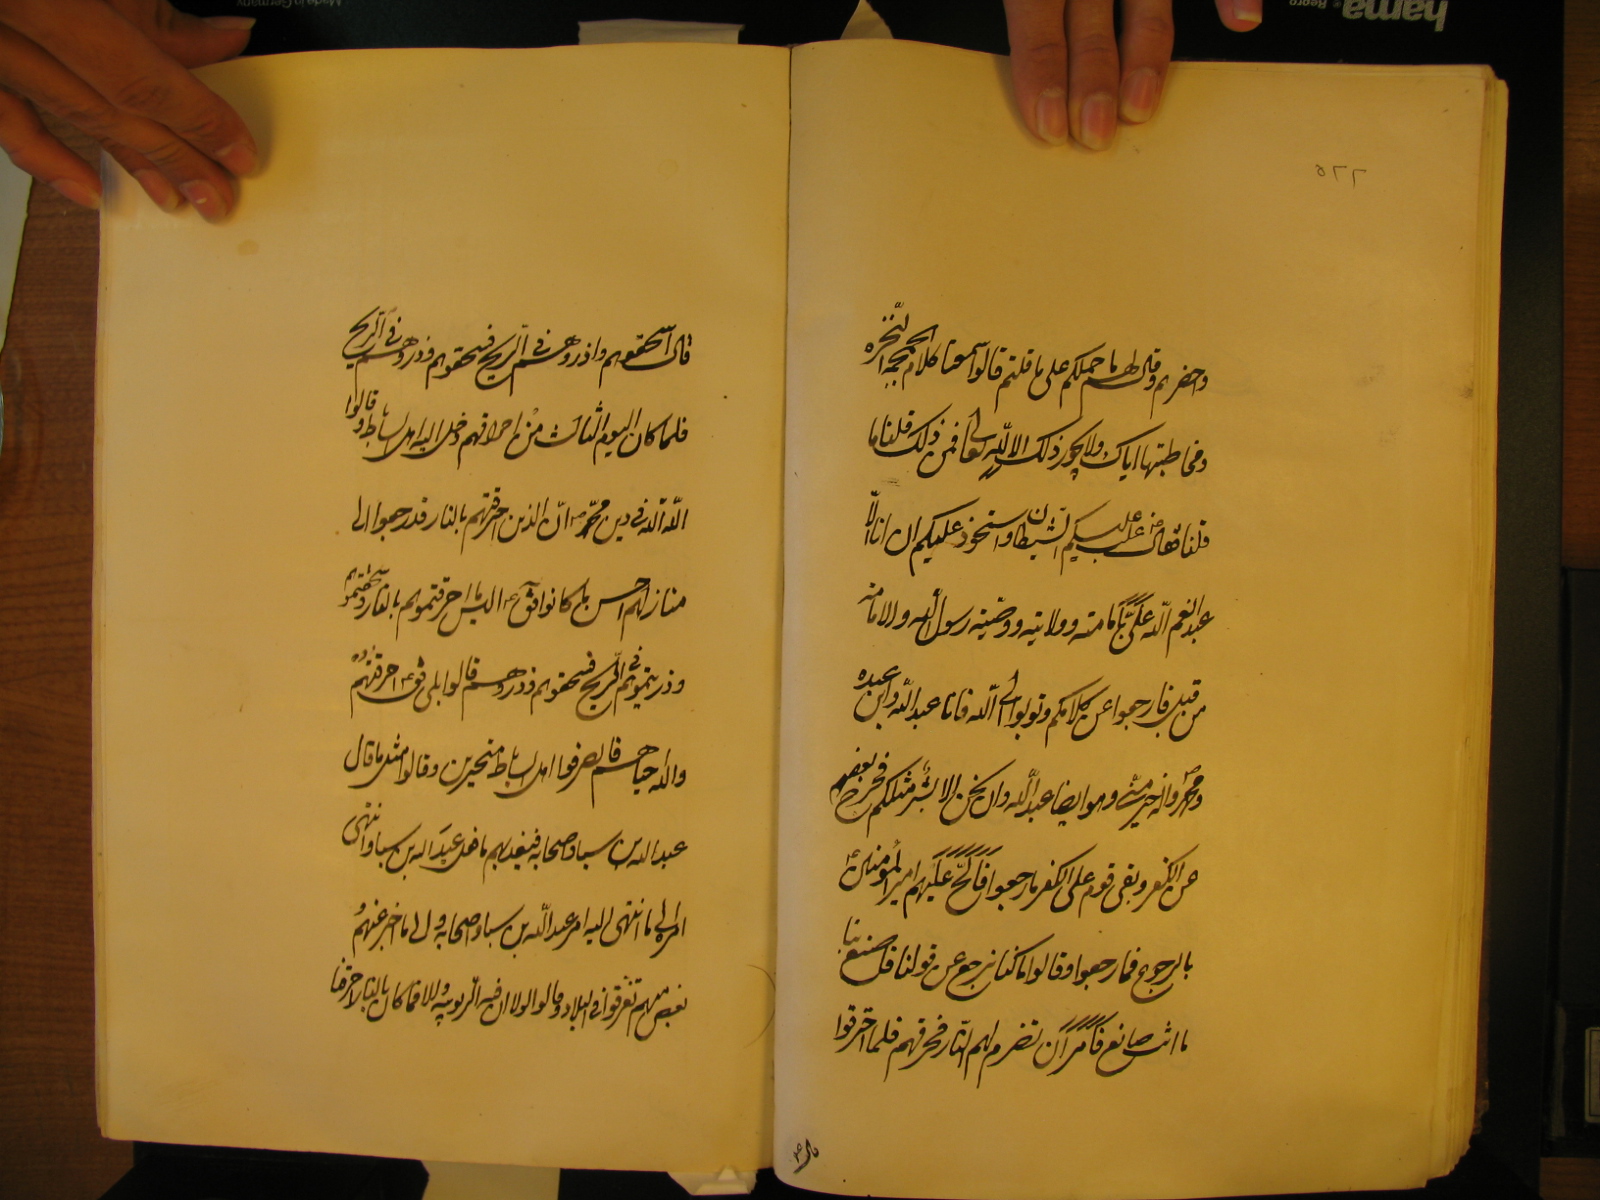 واحضرهم وقال لهم ما حملكم على ما قلتم قالوا سمعنا كلام الجمجمة النخرة
ومخاطبتها اياك ولا يجوز ذلك الا لله تعالى فمن ذلك قلنا ما
قلنا فقال ع غلب عليكم الشيطان واستحوذ عليكم ان انا الا
عبد انعم الله علىّ بامامته وولايته ووصيته رسول الله والامامه
من قبل فارجعوا عن كلامكم وتوبوا الى الله فانا عبد الله وابن عبده
ومحمد وانه خير منى وهو ايضا عبد الله وان نحن الا بشر مثلكم فخرج بعضهم
من الكفر وبقى قوم على الكفر ما رجعوا فالحّ عليهم امير المؤمنين ع
بالرجوع فما رجعوا وقالوا ما كنا نرجع عن قولنا فاصنع بنا
ما انت صانع فامر ان تضرم لهم النار فحرقهم فلما احترقوا
قال
قال اسحقوهم واذروهم فى الريح فسحقوهم وذروهم فى الريح
فلما كان اليوم الثالث من احراقهم دخل اليه اهل ساباط وقالوا
الله الله فى دين محمد ص ان الذين احرقتهم بالنار قد رجعوا الى
منازلهم احسن ما كانوا فقال ع اليس ما احرقتموهم بالنار وسحقتموهم
وذريتموهم فى الريح فسحقوهم وذروهم قالوا بلى فقال ع احرقتهم
والله احياهم فانصرفوا اهل ساباط متحيرين وقالوا مثل ما قال
عبد الله بن سبا واصحابه ففعل بهم ما فعل عبد الله بن سبا وانتهى
امره الى ما انتهى اليه امر عبد الله بن سبا واصحابه والى ما اخبر عنهم و
بعض منهم تفرقوا فى البلاد وقالوا لولا ان فيه الربوبيه والا فما كان بالنار احرقنا